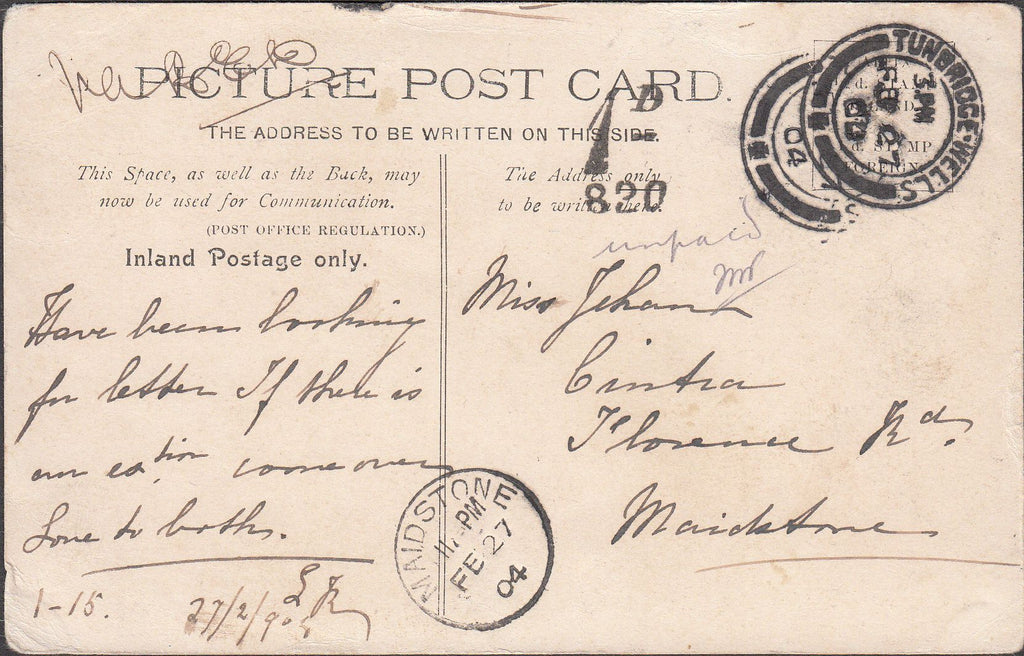 PICTURE POST CARD.
THE ADDRESS TO BE WRITTEN ON THIS SIDE.
This Space, as well as the Back, may
now be used for Communication.
(POST OFFICE REGULATION.)
Inland Postage only.
The Address only
to be written here.
1D
820
TUNBRIDGE-WELLS
3 PM
FE 27
04
04
unpaid
Have been looking
for letter If there is
an ex.tion come over
Love to both.
1-15.
27/2/90
Miss Jehan
Cintra
Florence Rd.
Maidstone
MAIDSTONE
PM
FE 27
04